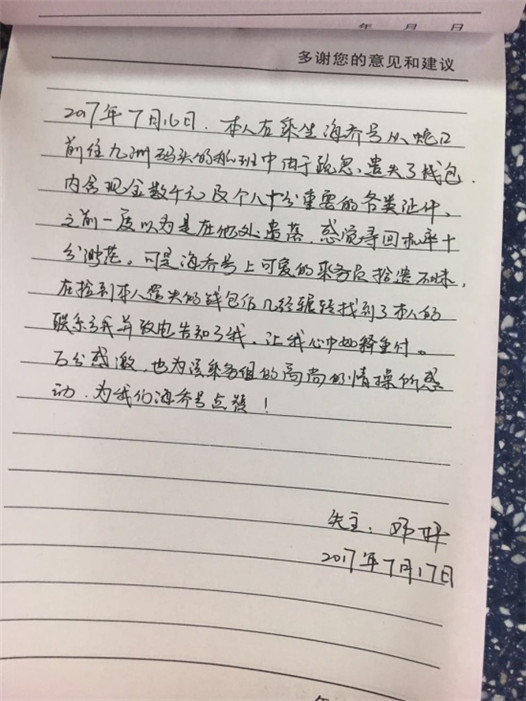 年 月 日
多谢您的意见和建议
2017年7月16日．本人在乘坐海乔号从蛇口
前往九洲码头的航班中由于疏忽、遗失了钱包．
内含现金数千元及个人十分重要的各类证件、
之前一度以为是在他处遗落 感觉寻回机率十
分渺茫。可是海乔号上可爱的乘务员拾遗不昧，
在捡到本人遗失的钱包后几经辗转找到了本人的
联系方式并致电告知了我，让我心中如释重付。
万分感激，也为该乘务组的高尚的情操所感
动．为我们海乔号点赞！
失主：邓
2017年7月17日